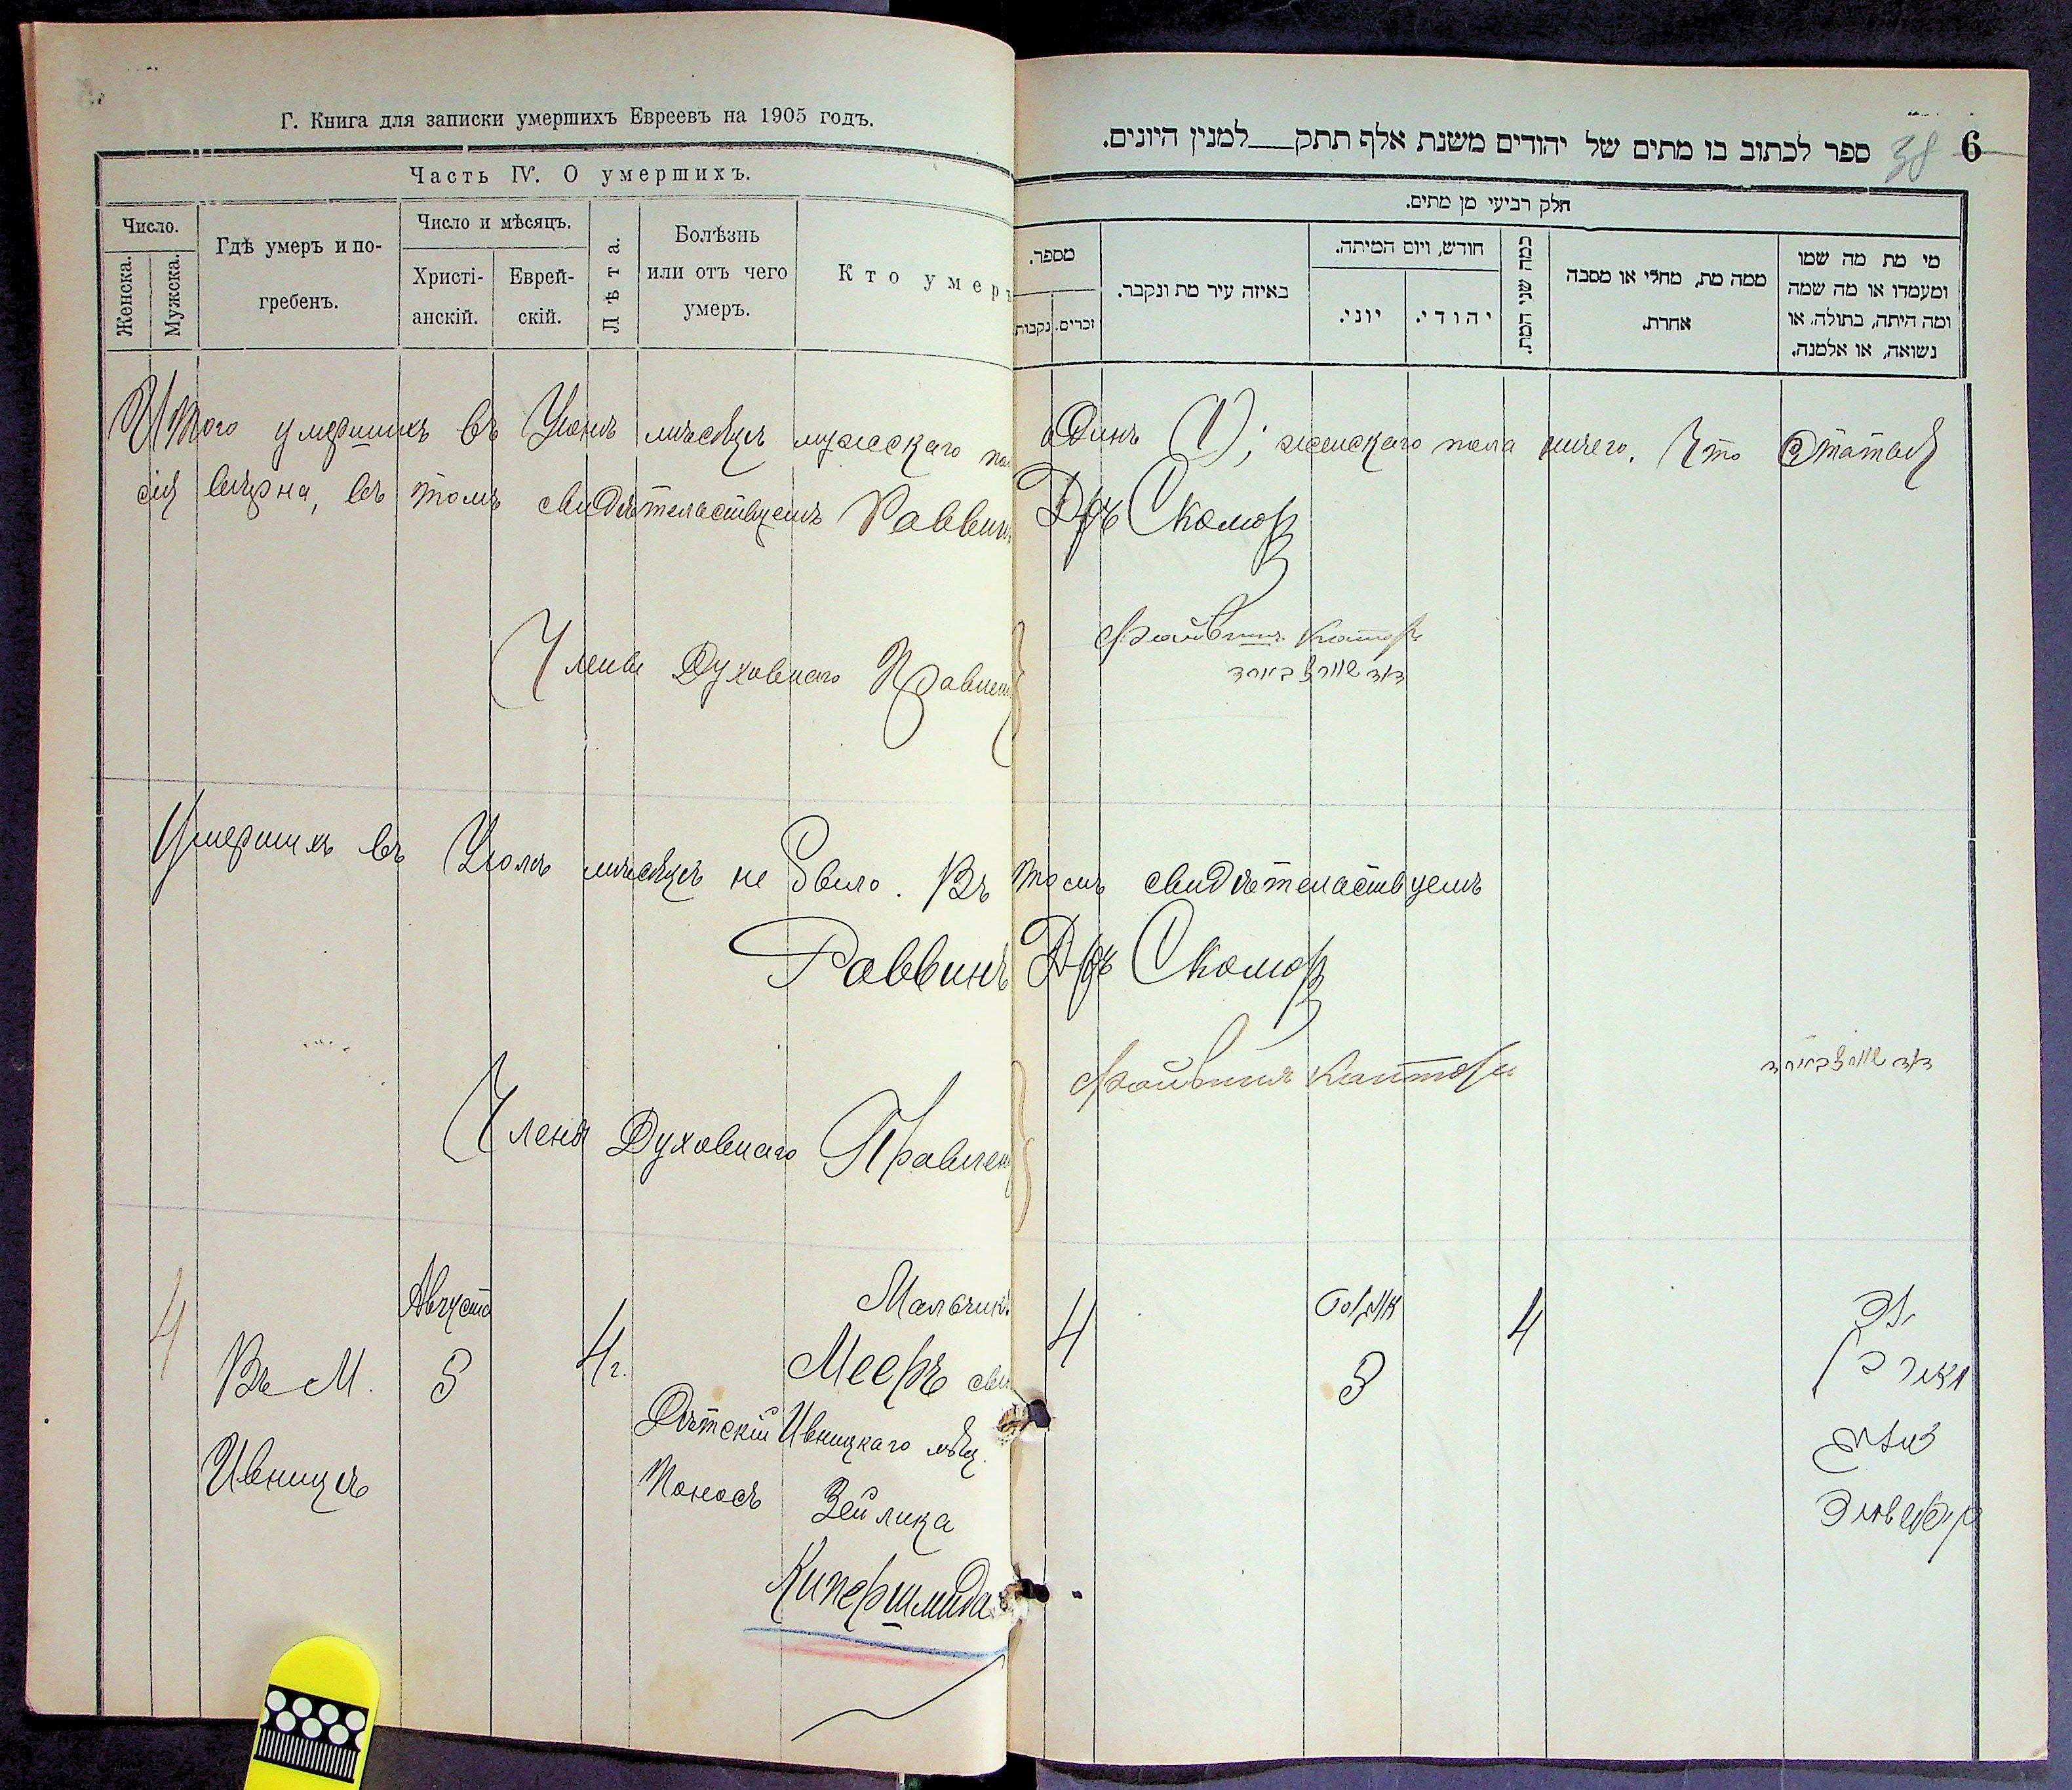 Г. Книга для записки умершихъ Евреевъ на 1905 годъ.
Часть IV. О умершихъ.
Число.
Женска.
Мужска.
Гдѣ умеръ и по-
гребенъ.
Число и мѣсяцъ.
Христі-
анскій.
Еврей-
скій.
Лѣта.
Болѣзнь
или отъ чего
умеръ.
Кто умеръ
ספר לכתוב בו מתים של יהודים משנת אלף תתק__למנין היונים.
38
6
חלק רביעי מן מתים.
מספר.
נקבות.
זכרים.
באיזה עיר מת ונקבר.
חודש, ויום המיתה.
יוני.
יהודי.
כמה שני המת.
ממה מת, מחלי או מסבה
אחרת.
מי מת מה שמו
ומעמדו או מה שמה
ומה היתה, בתולה, או
נשואה, או אלמנה.
Итого умершихъ въ Іюнѣ мѣсяцѣ мужскаго пола одинъ (1); женскаго пола ничего. Что статья
сія вѣрна, въ томъ свидѣтельствуемъ Раввинъ Д-ръ Скомор
Члены Духовнаго Правлен
Умершихъ въ Іюлѣ мѣсяцѣ не было. Въ томъ свидѣтельствуемъ
Раввинъ Д-ръ Скомор
Члены Духовнаго Правлен
4
Въ М.
Ивницѣ
Августа
3
4 г.
Дѣтскій
поносъ
Мальчикъ
Мееръ сынъ
Ивницкаго мѣщ.
Зейлика
Купершмида
4
אויגוסט
3
4
ילד
מאיר בן
זעליג
קופערשמיד